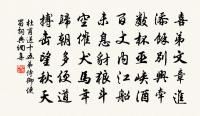 喜弟文章進
添餘別興牽
數杯巫峽酒
百丈內江船
未息豺狼斗
空催犬馬年
歸朝多便道
搏擊望秋天
杜甫送十五弟侍御使
蜀詞典網集